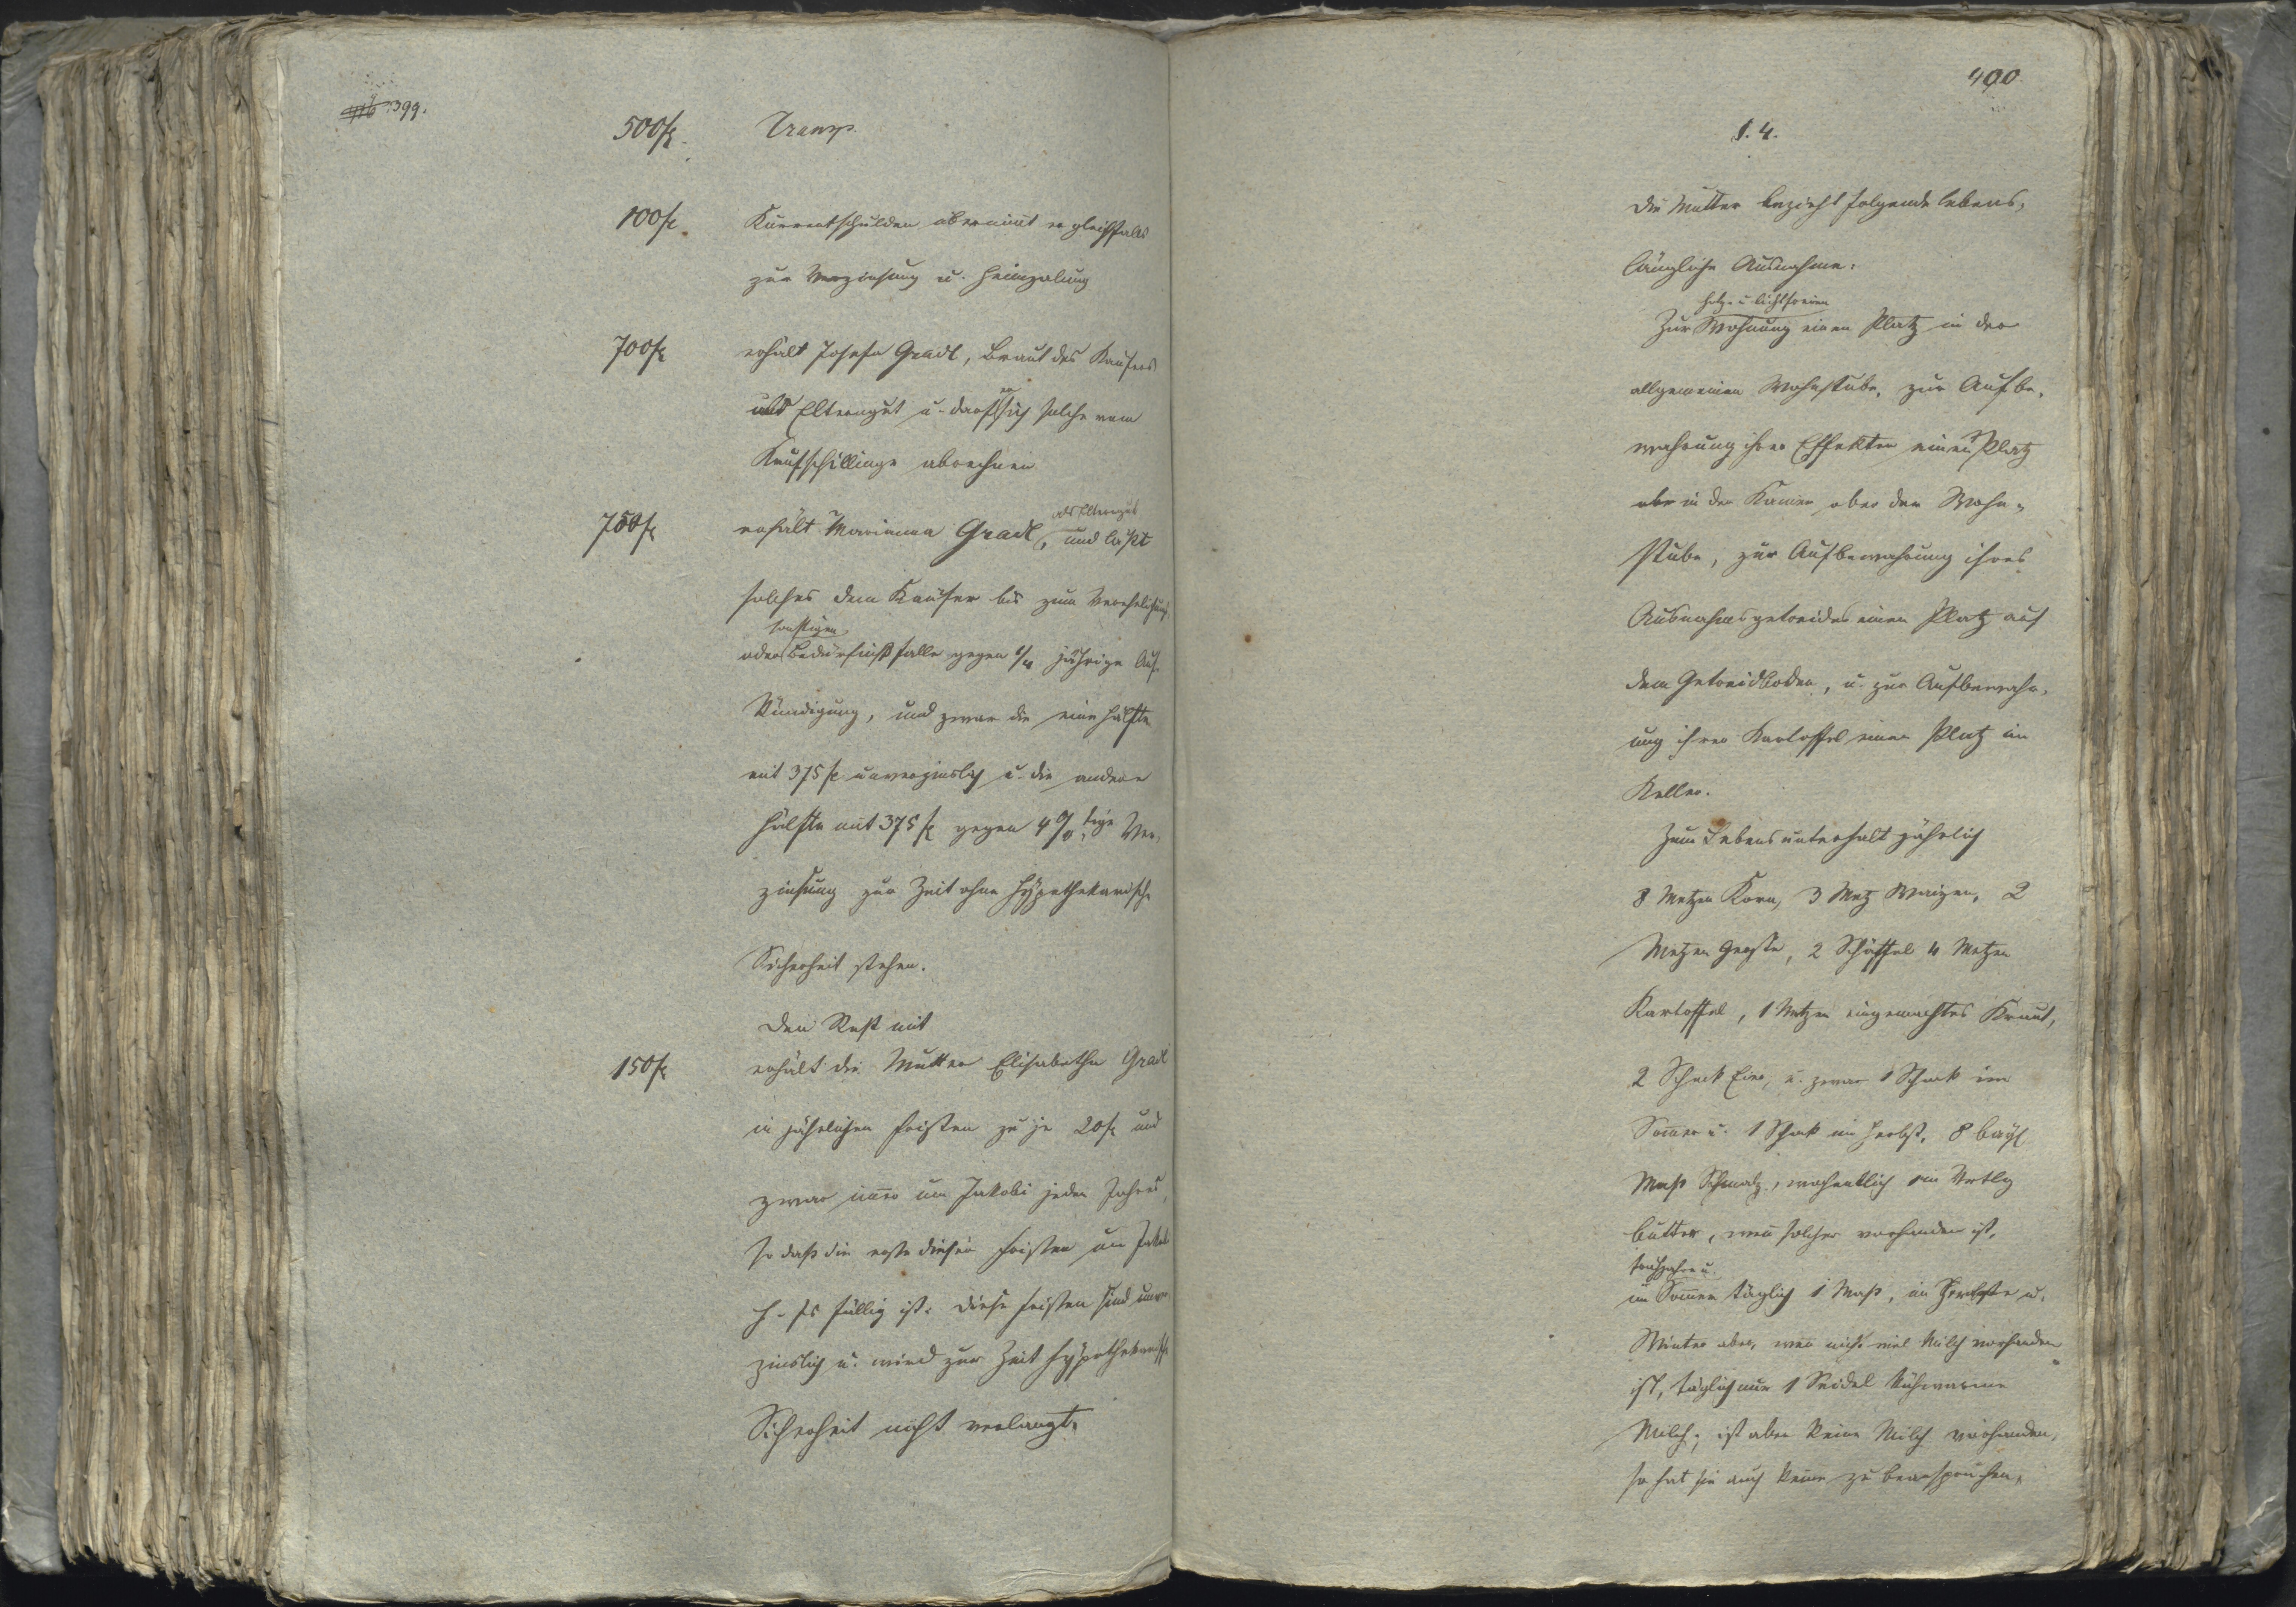 399.
500 fl. Transp.
100 fl. Kurrentschulden übernimt er gleichfalls
zur Verzinsung u. Heimzalung
700 fl. erhält Josefa Gradl, Braut des Kaufers
als Elterngut u. darf er sich solche vom
Kaufschillinge abrechnen
als Elterngut
750 fl. erhält Marianna Gradl, und läßt
solches dem Kaufer bis zum Verehelichungs
sonstigen
oder Bedürfnißfalle gegen 1/4 jährige Auf-
kündigung, und zwar die eine Hälfte
mit 375 fl. unverzinslich u. die andere
Hälfte mit 375 fl. gegen 4 % tige Ver-
zinsung zur Zeit ohne hypothekarische
Sicherheit stehen.
Den Rest mit
150 fl. erhält die Mutter Elisabetha Gradl
in jährlichen Fristen zu je 20 fl. und
zwar immer um Jakobi jeden Jahres,
so daß die erste dieser Fristen um Jakobi
h. Js fällig ist. Diese Fristen sind unver
zinslich u. wird zur Zeit hypothekarische
Sicherheit nicht verlangt.
400.
§. 4.
Die Mutter bezieht folgende lebens-
längliche Ausnahme:
holz- u. lichtfreien
Zur Wohnung einen Platz in der
allgemeinen Wohnstube, zur Aufbe-
wahrung ihrer Effekten einen Platz
in der Kamer ober der Wohn-
stube, zur Aufbewahrung ihres
Ausnahmsgetreides einen Platz auf
dem Getreidboden, u. zur Aufbewahr-
ung ihrer Kartoffel einen Platz im
Keller.
Zum Lebensunterhalt jährlich
8 Metzen Korn, 3 Metz Waizen, 2
Metzen Gerste, 2 Schäffel 4 Metzen
Kartoffel, 1 Metzen eingemachtes Kraut,
2 Schock Eier, u. zwar 1 Schock im
Sommer u. 1 Schock im Herbst, 8 bayr
Maß Schmalz, wochentlich ein Vrtlg
Butter, wenn solcher vorhanden ist,
Fruhjahr u.
im Sommer täglich 1 Maß, im Herbste u.
Winter aber, wenn nicht viel Milch vorhanden
ist, täglich nur 1 Seidel kuhwarme
Milch; ist aber keine Milch vorhanden,
so hat sie auch keine zu beanspruchen,